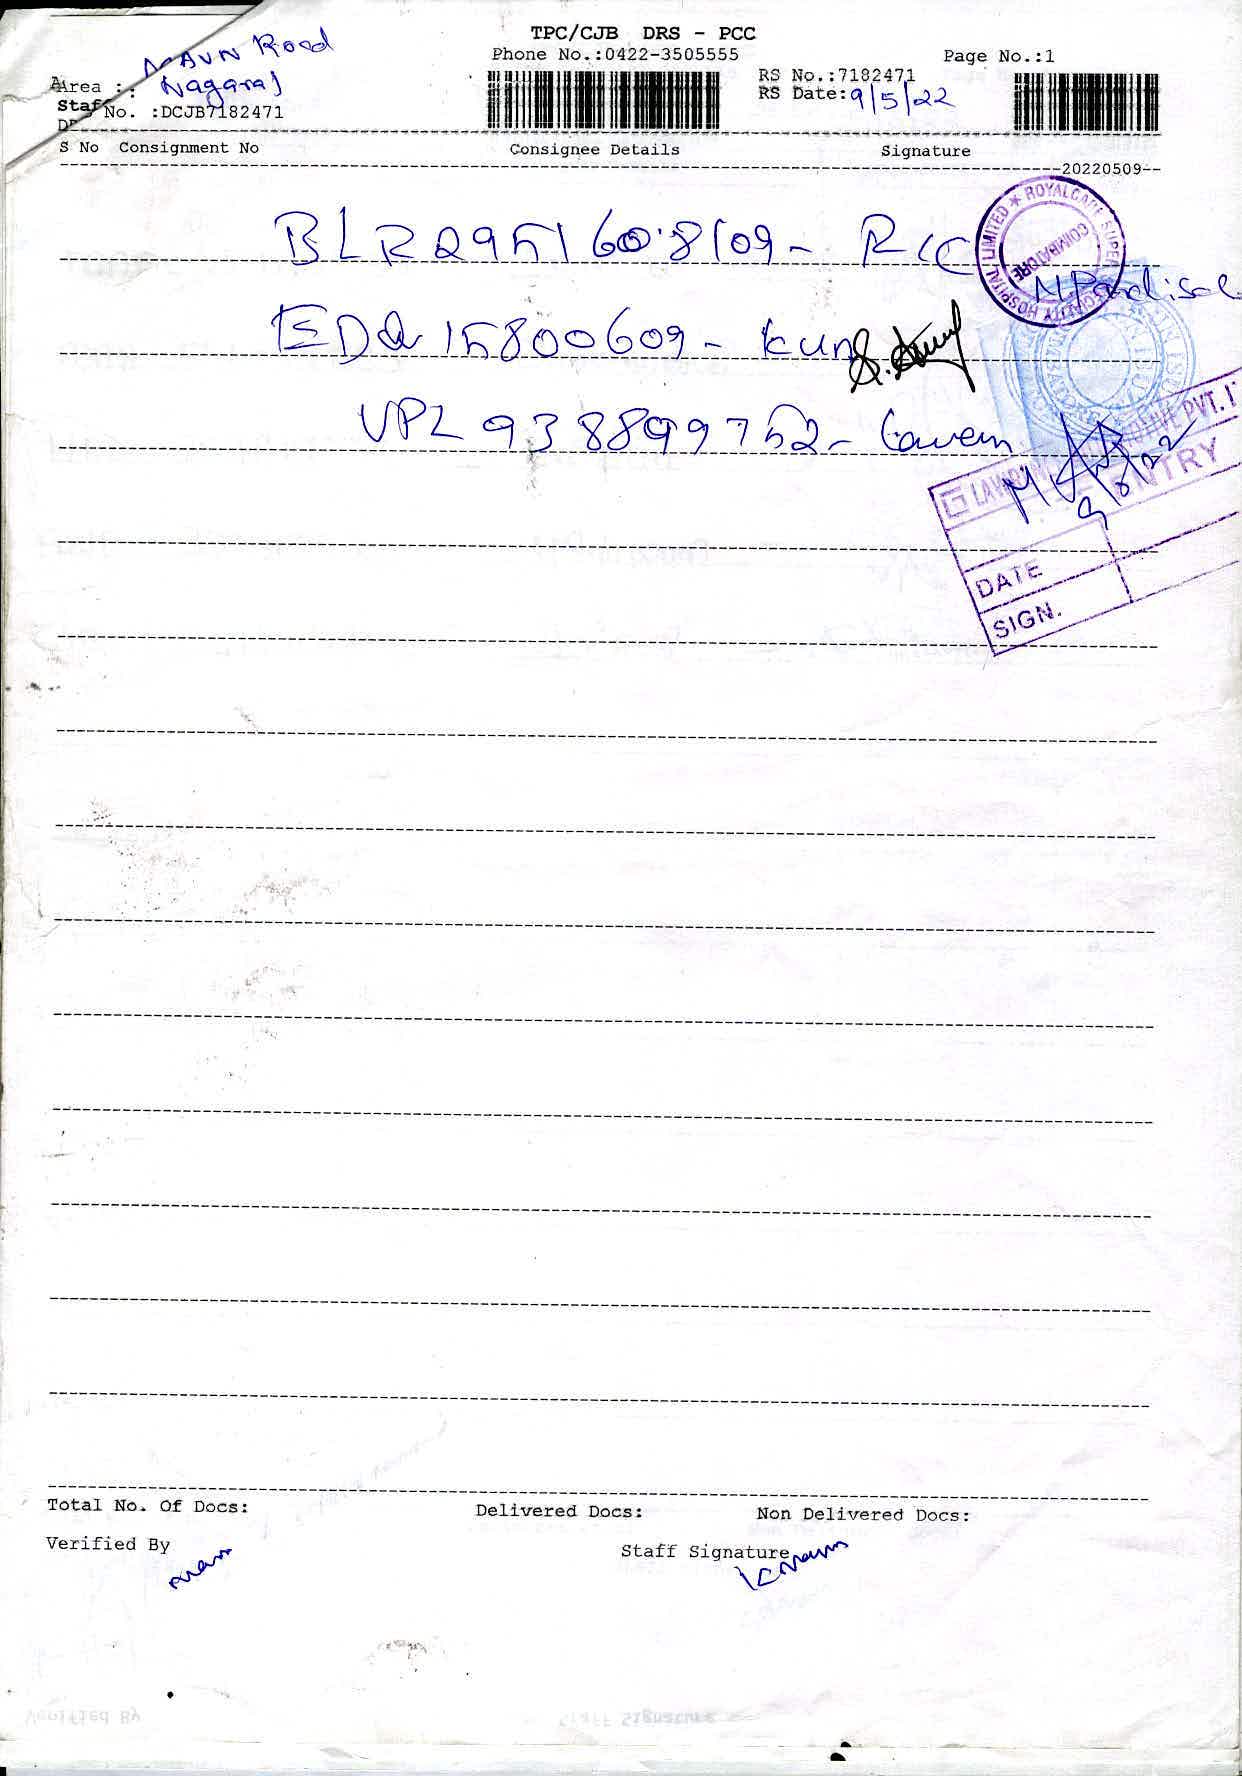 TPC/CJB DRS - PCC
Phone No.:0422-3505555
Page No.:1
Road
Area : Nagaraj
Staff
No. :DCJB7182471
RS No.:7182471
RS Date:9/5/22
S No Consignment No Consignee Details Signature
20220509
BLR2951608109 - RCC
ROYALCARE SUPER SPECIALITY HOSPITAL LIMITED
COIMBATORE
15800609 -
938899752 -
PVT.
ENTRY
9/5/22
DATE
SIGN.
Total No. Of Docs: Delivered Docs: Non Delivered Docs:
Verified By Staff Signature